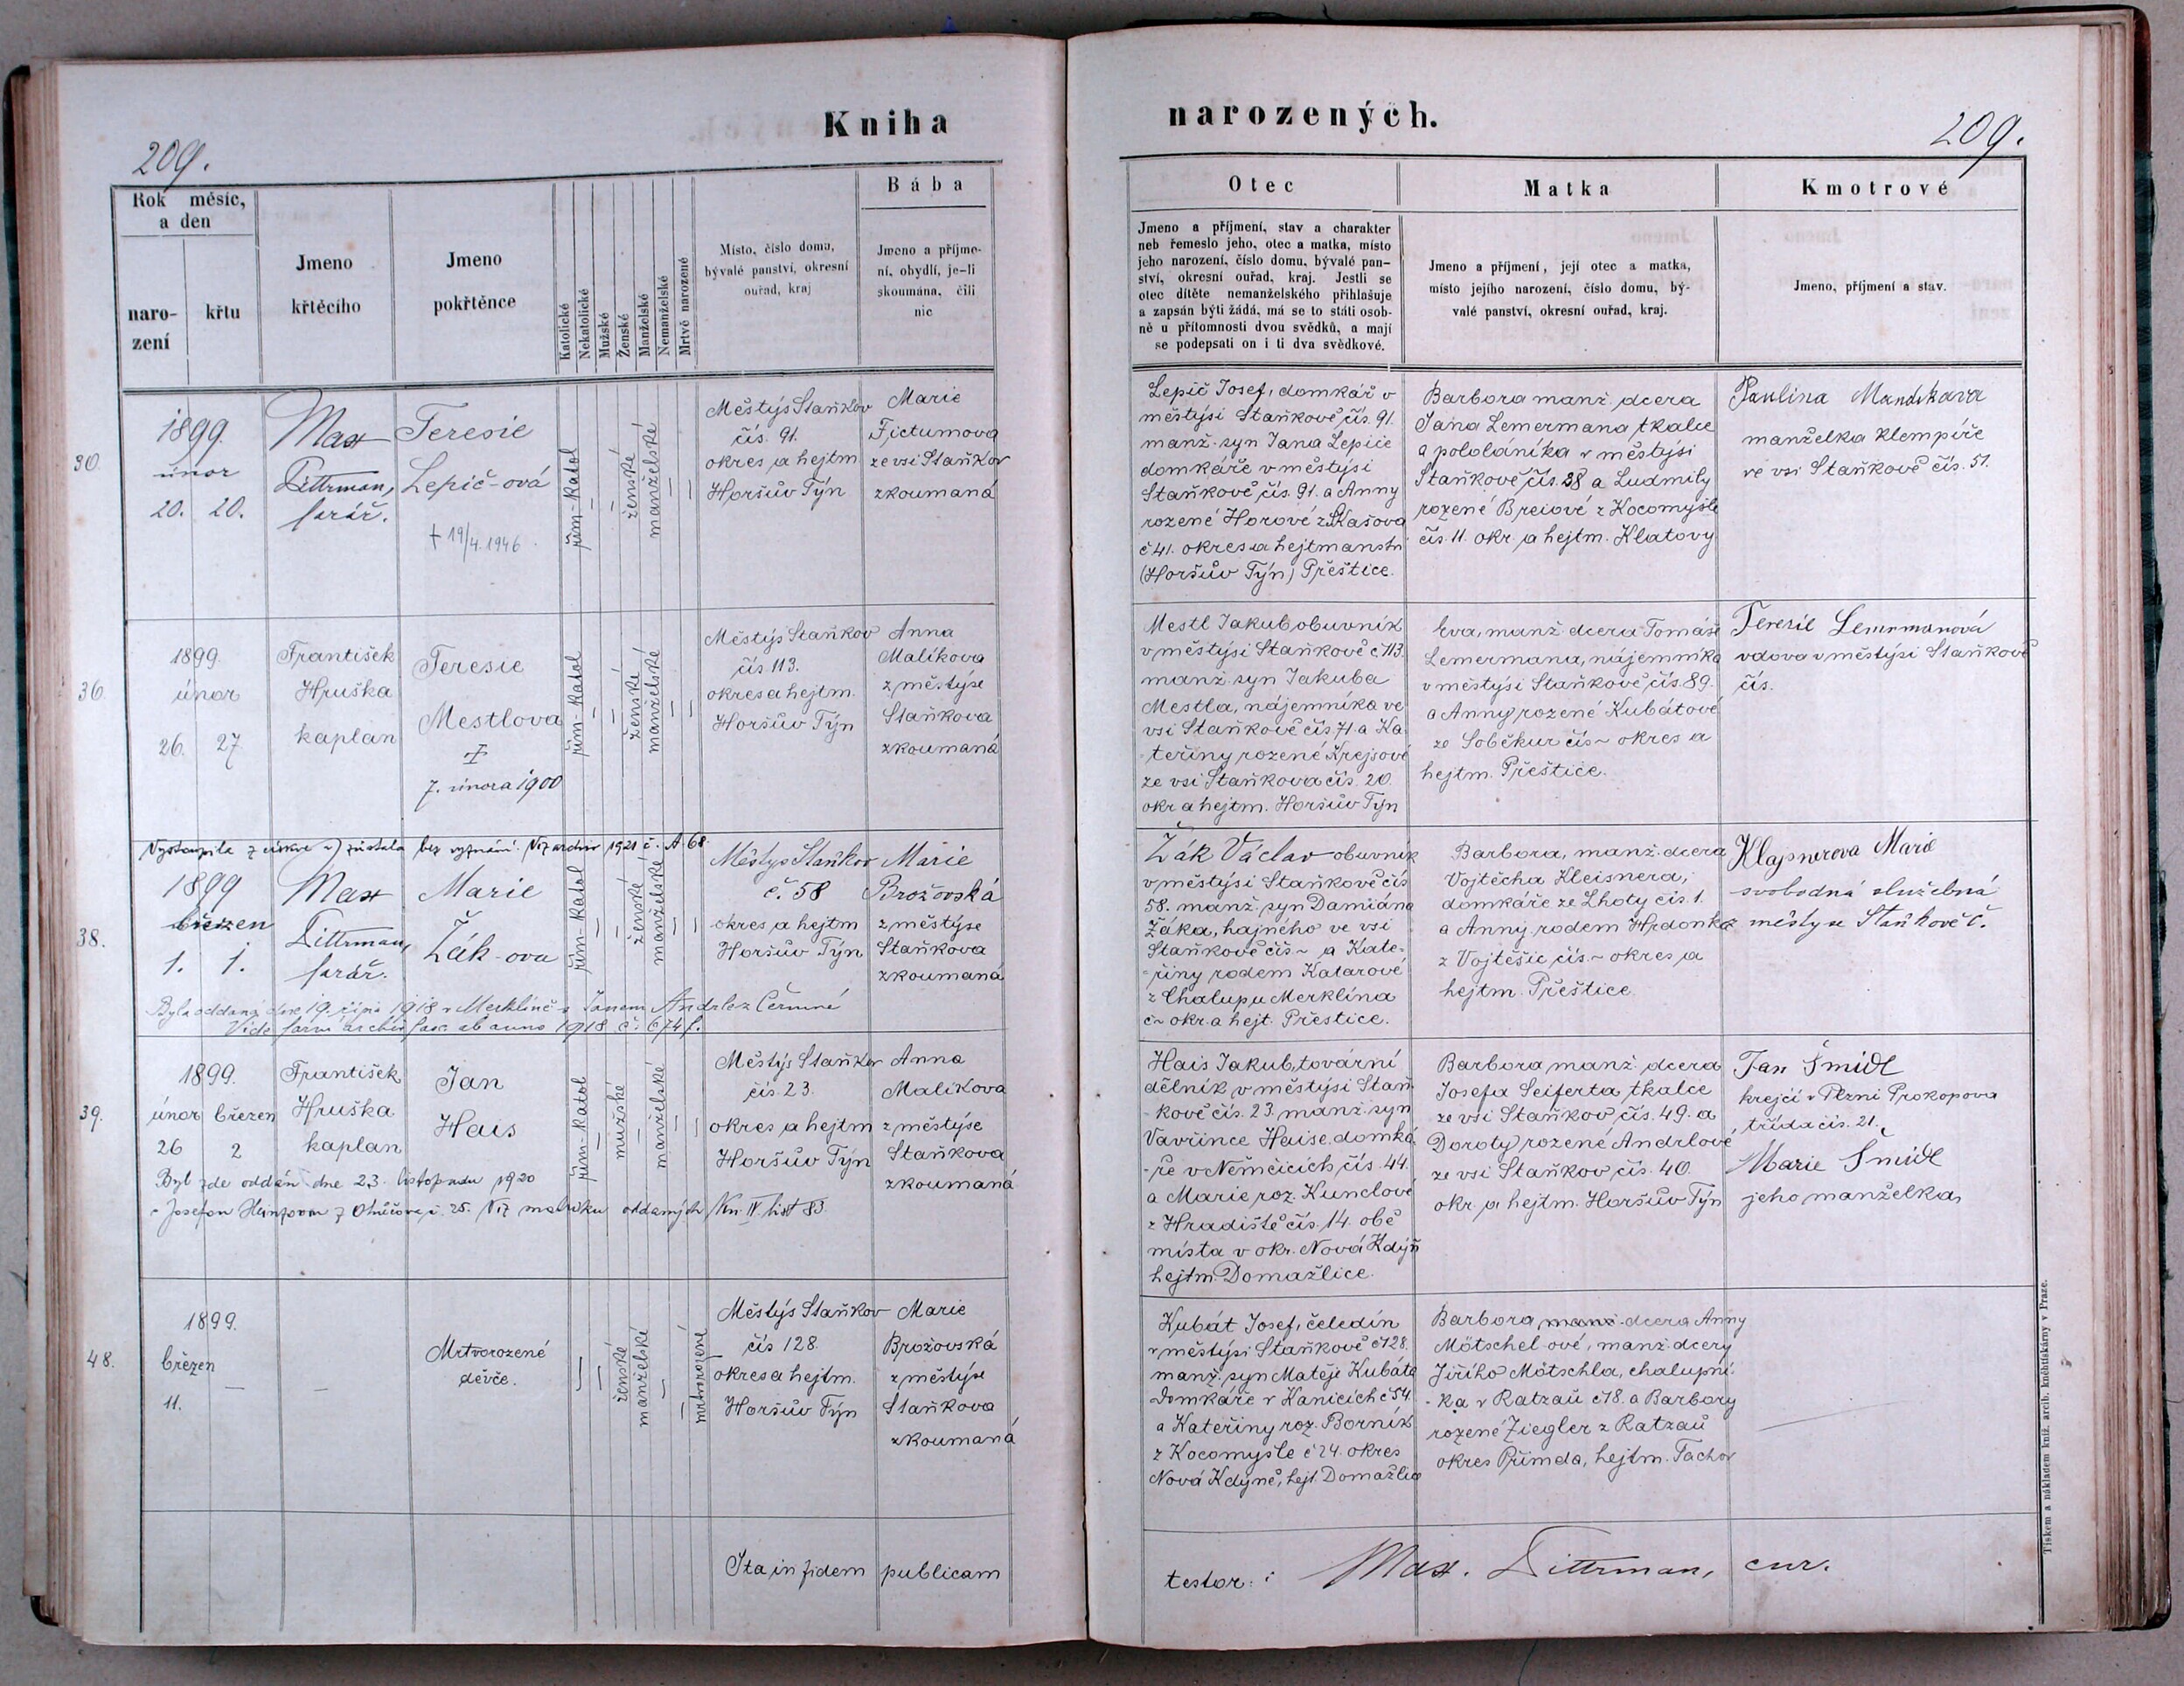 Kniha
narozených.
209.
209.
Rok měsíc,
a den
naro-
zení
křtu
Jmeno
křtěcího
Jmeno
pokřtěnce
Katolické
Nekatolické
Mužské
Ženské
Manželské
Nemanželské
Mrtvě narozené
Místo, číslo domu,
bývalé panství, okresní
ouřad, kraj
Bába
Jmeno a příjme-
ní, obydlí, je-li
skoumána, čili
nic
Otec
Jmeno a příjmení, stav a charakter
neb řemeslo jeho, otec a matka, místo
jeho narození, číslo domu, bývalé pan-
ství, okresní ouřad, kraj. Jestli se
otec dítěte nemanželského přihlašuje
a zapsán býti žádá, má se to státi osob-
ně u přítomnosti dvou svědků, a mají
se podepsati on i ti dva svědkové.
Matka
Jmeno a příjmení, její otec a matka,
místo jejího narození, číslo domu, bý-
valé panství, okresní ouřad, kraj.
Kmotrové
Jmeno, příjmení a stav.
30.
1899.
únor
20. 20.
Max
Dittrman,
farář.
Teresie
Lepič-ová
† 19/4. 1946.
řím-katol
ženské
manželské
Městýs Staňkov
čís. 91.
okres a hejtm
Horšův Týn
Marie
Fictumova
ze vsi Staňkov
zkoumaná
Lepič Josef, domkář v
městýsi Staňkově čís. 91.
manž. syn Jana Lepiče
domkáře v městýsi
Staňkově čís. 91. a Anny
rozené Horové z Skašova
č 41. okres a hejtmanstv
(Horšův Týn) Přeštice.
Barbora manž. dcera
Jana Lemermana tkalce
a pololáníka v městýsi
Staňkově čís. 28 a Ludmily
rozené Breiové z Kocomyšle
čís. 11. okr. a hejtm. Klatovy
Paulina
manželka klempíře
ve vsi Staňkově čís. 51.
36.
1899.
únor
26. 27
František
Hruška
kaplan
Teresie
Mestlova
†
7. února 1900
řím-katol
ženské
manželské
Městýs Staňkov
čís 113.
okres a hejtm.
Horšův Týn
Anna
Malíkova
z městýse
Staňkova
zkoumaná
Mestl Jakub obuvník
v městýsi Staňkově č 113.
manž. syn Jakuba
Mestla, nájemníka ve
vsi Staňkově čís. 71. a Ka
teřiny rozené Krejsové
ze vsi Staňkova čís. 20.
okr a hejtm. Horšův Týn
Eva, manž. dcera Tomáše
Lemermana, nájemníka
v městýsi Staňkově čís. 89.
a Anny rozené Kubátové
ze Soběkur čís ~ okres a
hejtm. Přeštice.
Teresie Lemrmanová
vdova v městýsi Staňkově
čís.
Vystoupila z církve a zůstala bez vyznání. Viz archiv 1921 č. A. 68
38.
1899
březen
1. 1.
Max
Dittrman,
farář.
Marie
Žák-ova
řím-katol
ženské
manželské
Městys Staňkov
č. 58
okres a hejtm
Horšův Týn
Marie
Brožovská
z městýse
Staňkova
zkoumaná
Byla oddána dne 19. října 1918 v Merklíně s Janem Andrlez Čermné
Vide farní archiv fasc ab anno 1918 č. 674 f.
Žák Václav obuvník
v městýsi Staňkově čís
58. manž. syn Damiána
Žáka, hajného ve vsi
Staňkově čís ~ a Kate-
řiny rodem Katarové
z Chalup u Merklína
č ~ okr. a hejt. Přeštice.
Barbora, manž. dcera
Vojtěcha Kleisnera,
domkáře ze Lhoty čís. 1.
a Anny rodem Hrdonka
z Vojtěšic čís. ~ okres a
hejtm. Přeštice
Klajsnerova Marie
svobodná služebná
z městyse Staňkově č.
39.
1899.
únor březen
26 2
František
Hruška
kaplan
Jan
Hais
řím-katol
mužské
manželské
Městýs Staňkov
čís. 23.
okres a hejtm
Horšův Týn
Anna
Malíkova
z městýse
Staňkova
zkoumaná
Byl zde oddán dne 23. listopadu 1920
s Josefou Heinzovou z č. 25. Viz matriku oddaných Kn. IV. list 83.
Hais Jakub, tovární
dělník v městýsi Staň-
kově čís. 23. manž. syn
Vavřince Haise, domká
-ře v Němčicích čís. 44.
a Marie roz. Kunclové
z Hradiště čís. 14. obě
místa v okr. Nová Kdýň
hejtm. Domažlice.
Barbora manž. dcera
Josefa Seiferta tkalce
ze vsi Staňkov čís. 49. a
Doroty rozené Andrlové
ze vsi Staňkov čís. 40.
okr. a hejtm. Horšův Týn
Jan Šmidl
krejčí v Plzni Prokopova
třída čís. 21.
Marie Šmidl
jeho manželka
48.
1899.
březen
11.
Mrtvorozené
děvče.
ženské
manželské
mrtvorozené
Městýs Staňkov
čís 128.
okres a hejtm.
Horšův Týn
Marie
Brožovská
z městýse
Staňkova
zkoumaná
Kubát Josef, čeledín
v městýsi Staňkově č 128.
manž. syn Matěje Kubáta
domkáře v Kanicích č 54.
a Kateřiny roz. Borník
z Kocomyšle č 24. okres
Nová Kdyně, hejt. Domažlice
Barbora manž. dcera Anny
Mötschel-ové, manž. dcery
Jiřího Mötschla, chalupní-
-ka v Ratzaú č 18. a Barbory
rozené Ziegler z Ratzaú
okres Přimda, hejtm. Tachov
Ita in fidem publicam
testor: Max. Dittrman, cur.
Tiskem a nákladem kníž. arcib. knihtiskárny v Praze.